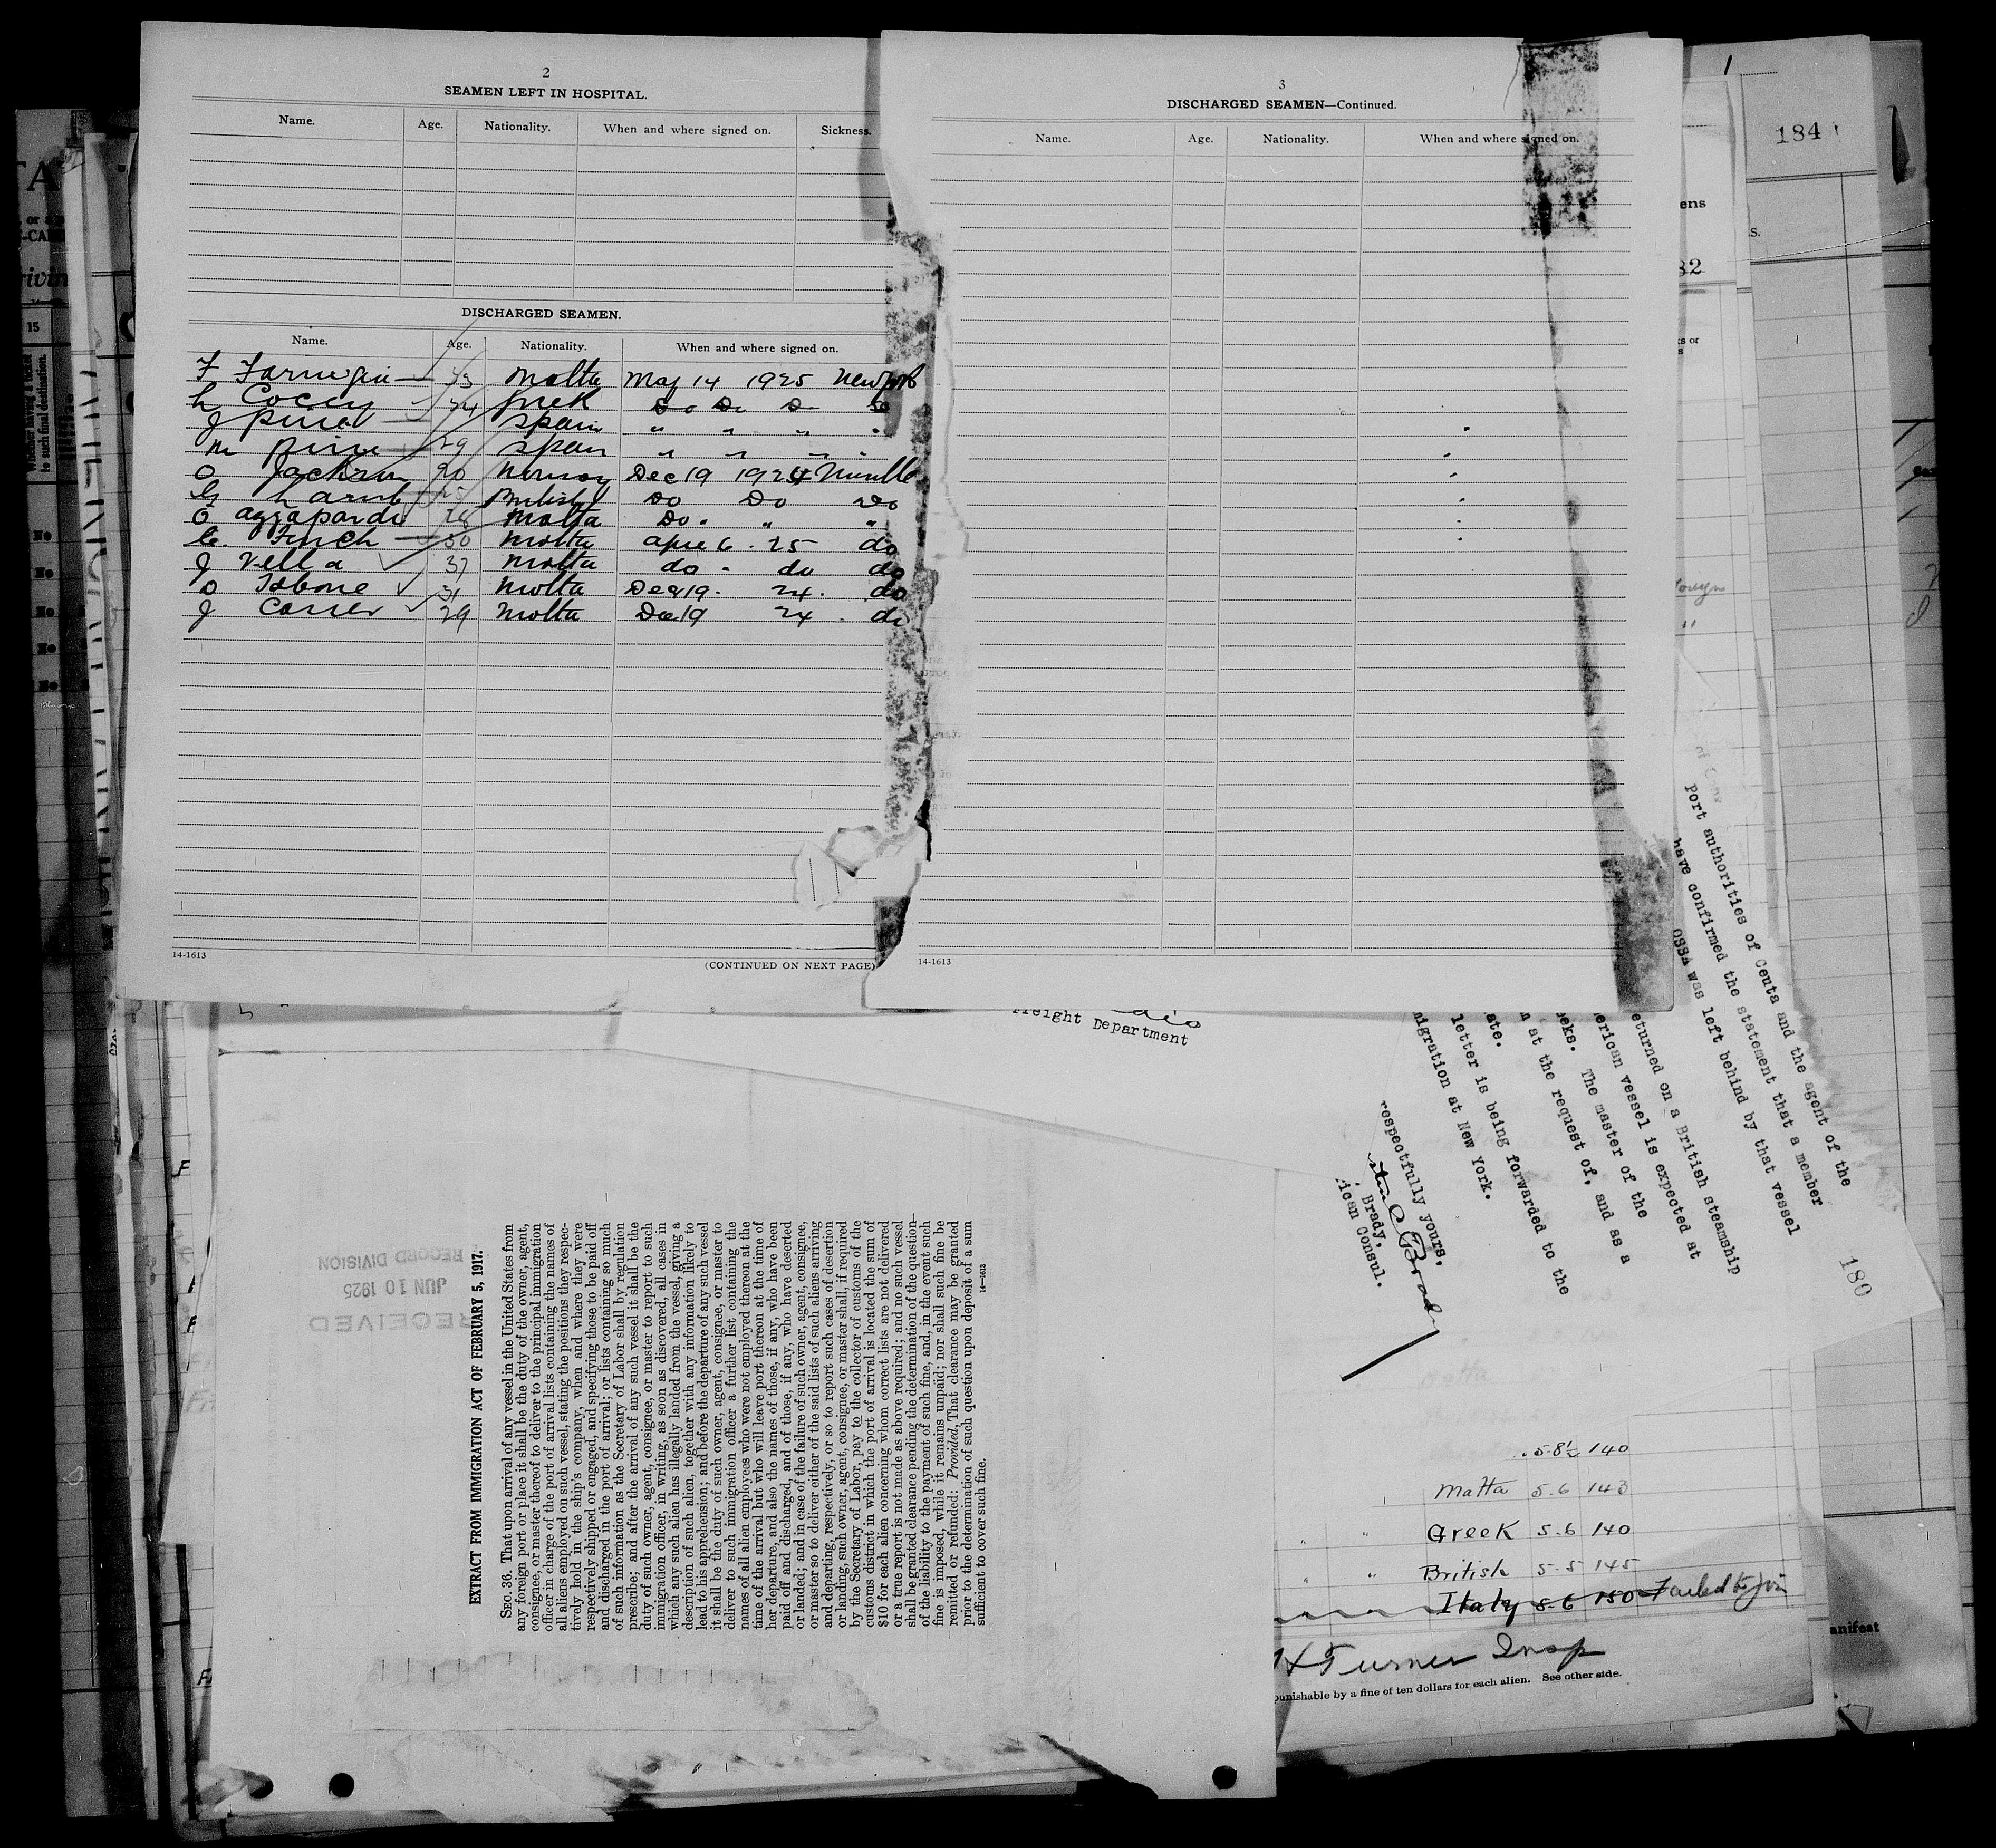 2
SEAMEN LEFT IN HOSPITAL.
Name. Age. Nationality. When and where signed on. Sickness.
DISCHARGED SEAMEN.
Name. Age. Nationality. When and where signed on.
F 33 Malta May 14 1925 Newport
Coccy 34 Greek Do Do Do Do
J Spain " " " "
M 29 Spain " " " "
O Jackson 20 Norway Dec 19 1924
British Do Do Do
O Azzapardi 28 Malta Do " " "
C. French 30 Malta April 6 . 25 do
J Vella 37 Malta do " do do
O 31 Malta Dec 19. 24. do
J 29 Malta Dec 19 24 . do
14-1613
(CONTINUED ON NEXT PAGE)
3
DISCHARGED SEAMEN—Continued.
Name. Age. Nationality. When and where signed on.
14-1613
184
15
Whether having a ticket to such final destination.
No
No
No
No
No
ens
82
Freight Department
Port authorities of Ceuta and the agent of the
have confirmed the statement that a member
OSSA was left behind by that vessel
eturned on a British steamship
erican vessel is expected at
eeks. The master of the
at the request of, and as a
ate.
letter is being forwarded to the
migration at New York.
respectfully yours,
Brady,
ican Consul.
180
RECEIVED
JUN 10 1925
RECORD DIVISION
EXTRACT FROM IMMIGRATION ACT OF FEBRUARY 5, 1917.
SEC. 36. That upon arrival of any vessel in the United States from
any foreign port or place it shall be the duty of the owner, agent,
consignee, or master thereof to deliver to the principal immigration
officer in charge of the port of arrival lists containing the names of
all aliens employed on such vessel, stating the positions they respec-
tively hold in the ship's company, when and where they were
respectively shipped or engaged, and specifying those to be paid off
and discharged in the port of arrival; or lists containing so much
of such information as the Secretary of Labor shall by regulation
prescribe; and after the arrival of any such vessel it shall be the
duty of such owner, agent, consignee, or master to report to such
immigration officer, in writing, as soon as discovered, all cases in
which any such alien has illegally landed from the vessel, giving a
description of such alien, together with any information likely to
lead to his apprehension; and before the departure of any such vessel
it shall be the duty of such owner, agent, consignee, or master to
deliver to such immigration officer a further list containing the
names of all alien employees who were not employed thereon at the
time of the arrival but who will leave port thereon at the time of
her departure, and also the names of those, if any, who have been
paid off and discharged, and of those, if any, who have deserted
or landed; and in case of the failure of such owner, agent, consignee,
or master so to deliver either of the said lists of such aliens arriving
and departing, respectively, or so to report such cases of desertion
or landing, such owner, agent, consignee, or master shall, if required
by the Secretary of Labor, pay to the collector of customs of the
customs district in which the port of arrival is located the sum of
$10 for each alien concerning whom correct lists are not delivered
or a true report is not made as above required; and no such vessel
shall be granted clearance pending the determination of the question
of the liability to the payment of such fine, and, in the event such
fine is imposed, while it remains unpaid; nor shall such fine be
remitted or refunded: Provided, That clearance may be granted
prior to the determination of such question upon deposit of a sum
sufficient to cover such fine.
14—1613
5-8½ 140
Malta 5-6 143
" " Greek 5-6 140
" " British 5-5 145
Italy 5-6 150 Failed to join
H Turner Insp
punishable by a fine of ten dollars for each alien. See other side.
anifest